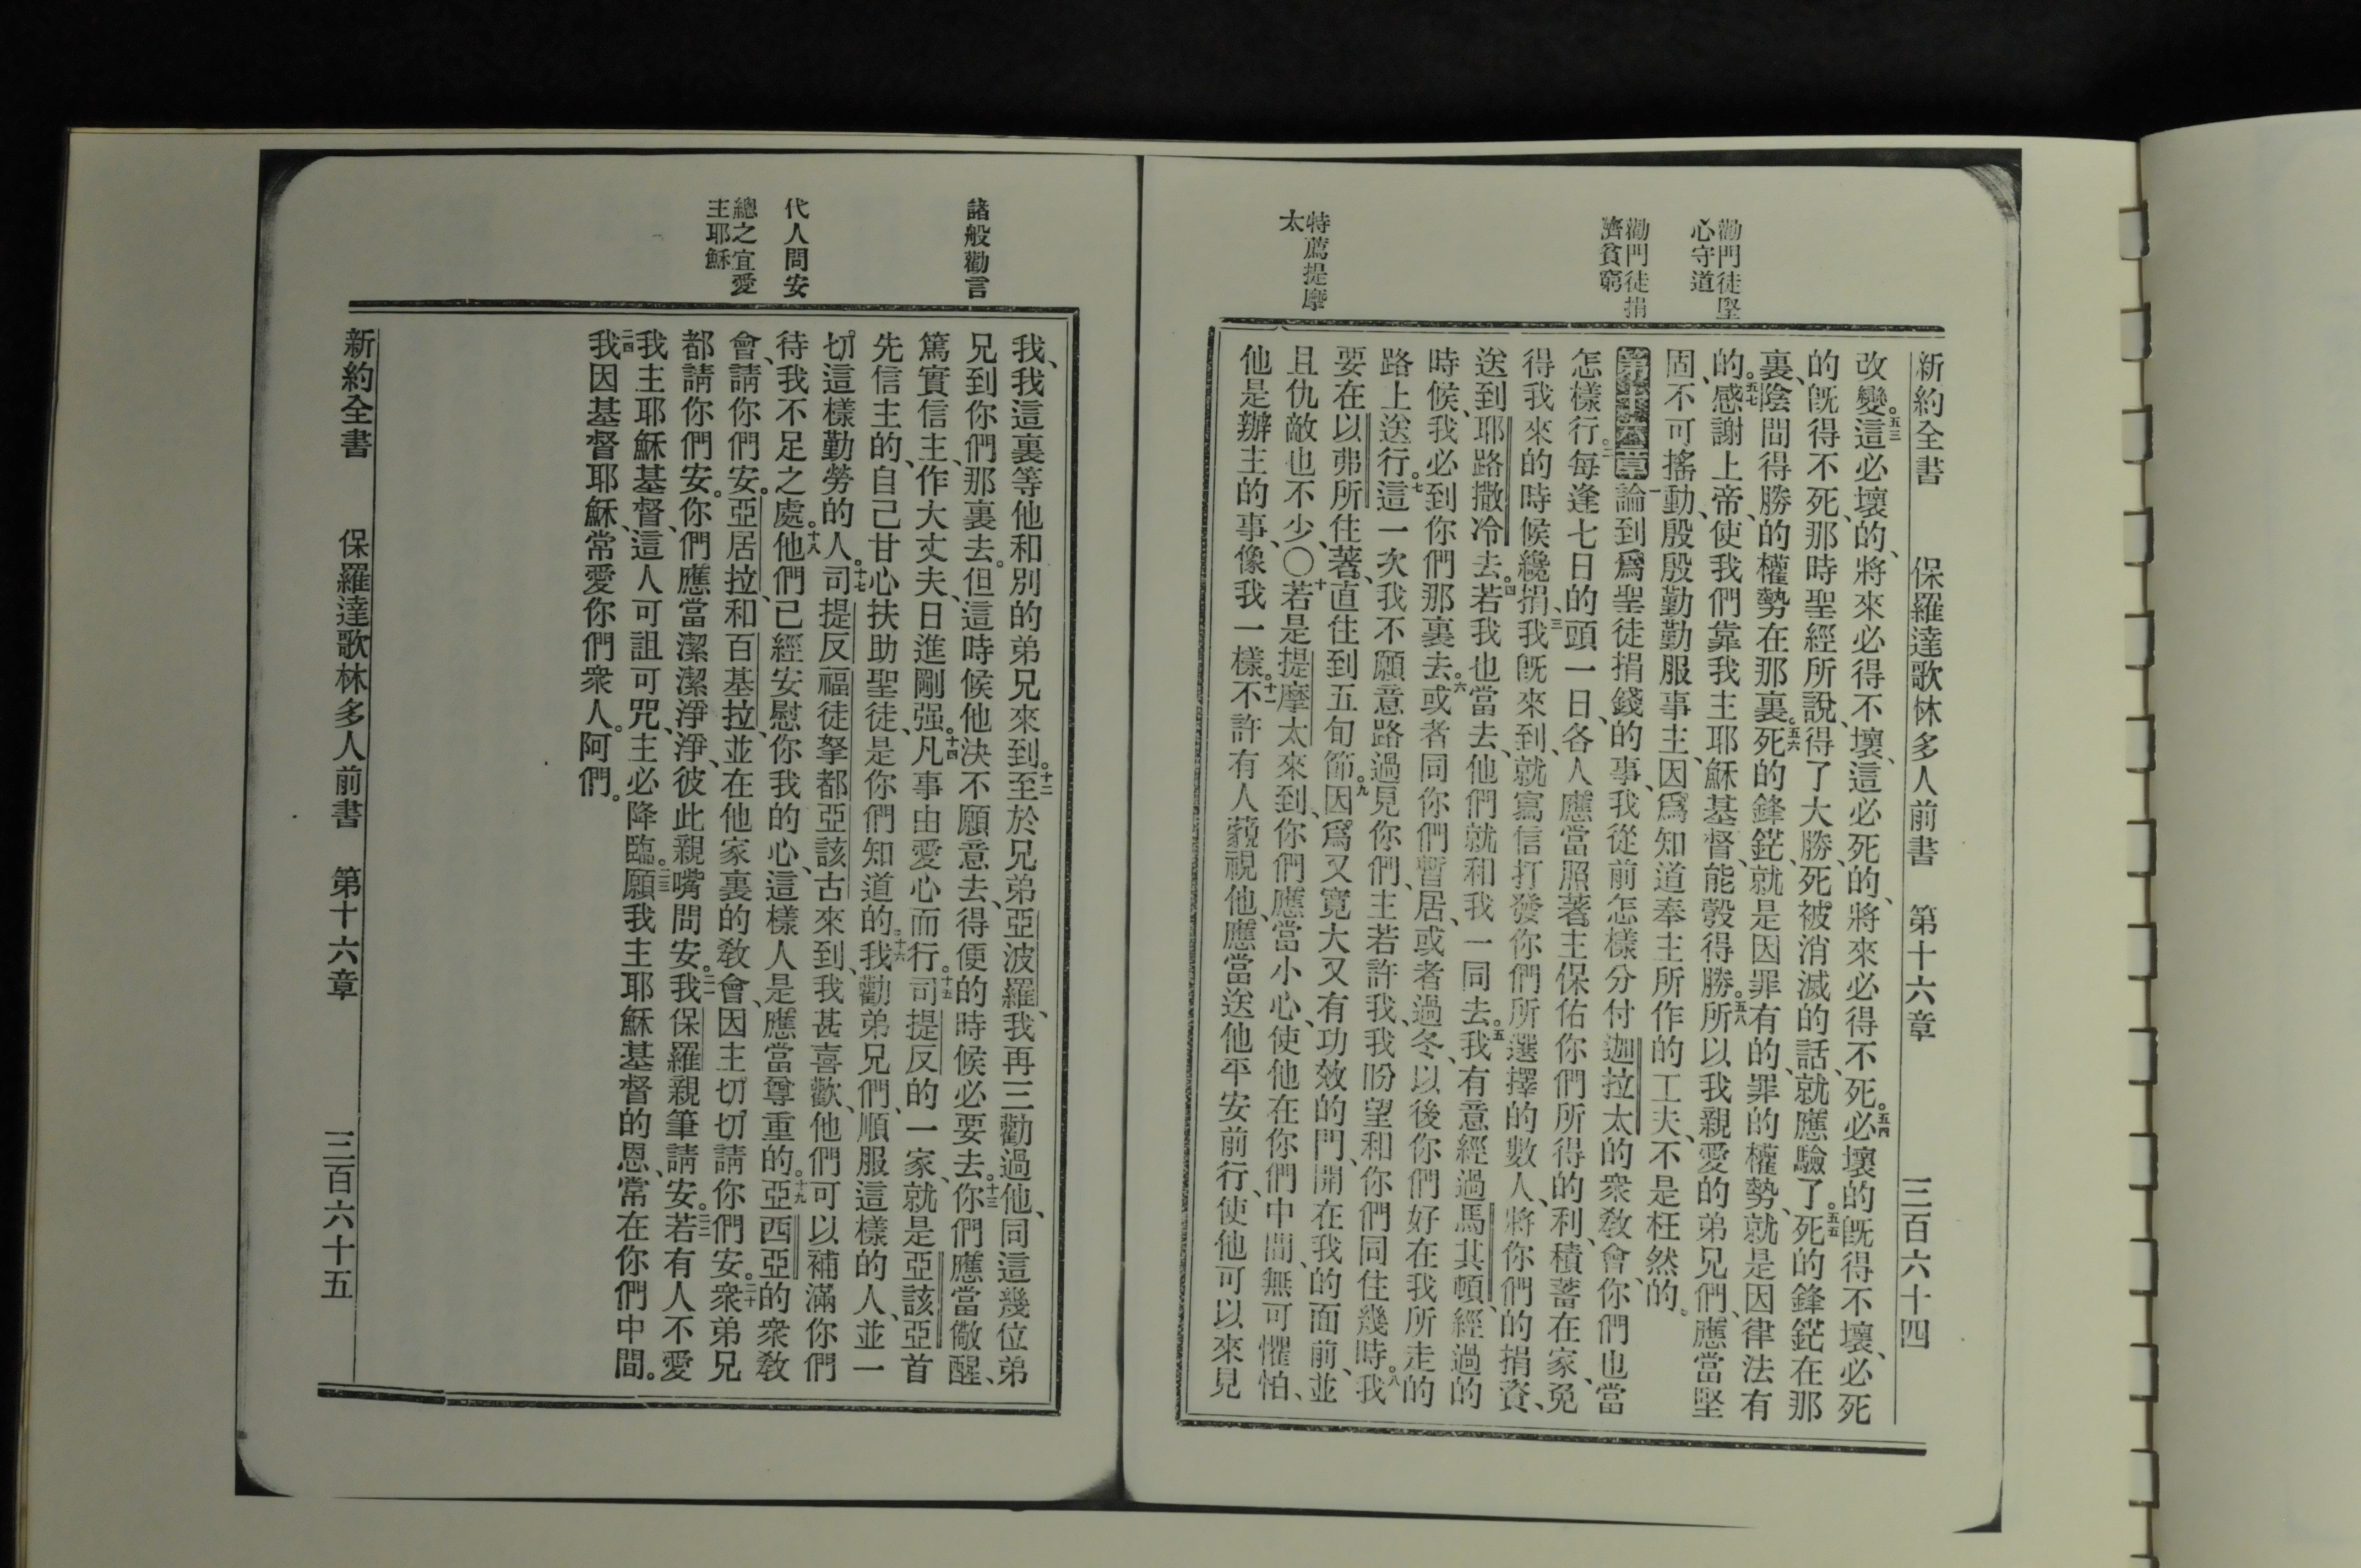 新約全書 保羅達歌林多人前書 第十六章 三百六十四
勸門徒堅
心守道
勸門徒捐
濟貧窮
特薦提摩
太
改變。五三這必壞的、將來必得不壞、這必死的、將來必得不死。五四必壞的旣得不壞、必死
的旣得不死、那時聖經所說、得了大勝、死被消滅的話、就應驗了。五五死的鋒鋩在那
裏、陰間得勝的權勢在那裏。五六死的鋒鋩、就是因罪有的、罪的權勢、就是因律法有
的。五七感謝上帝、使我們靠我主耶穌基督、能彀得勝。五八所以我親愛的弟兄們、應當堅
固、不可搖動、殷殷勤勤服事主、因爲知道奉主所作的工夫、不是枉然的。
第十六章一論到爲聖徒捐錢的事、我從前怎樣分付迦拉太的衆敎會、你們也當
怎樣行。二每逢七日的頭一日、各人應當照著主保佑你們所得的利、積蓄在家、免
得我來的時候纔捐、三我旣來到、就寫信打發你們所選擇的數人、將你們的捐資、
送到耶路撒冷去。四若我也當去、他們就和我一同去。五我有意經過馬其頓、經過的
時候、我必到你們那裏去。六或者同你們暫居、或者過冬、以後你們好在我所走的
路上送行。七這一次我不願意路過見你們、主若許我、我盼望和你們同住幾時。八我
要在以弗所住著、直住到五旬節。九因爲又寬大又有功效的門、開在我的面前、並
且仇敵也不少、〇十若是提摩太來到、你們應當小心、使他在你們中間、無可懼怕、
他是辦主的事、像我一樣。十一不許有人藐視他、應當送他平安前行、使他可以來見
諸般勸言
代人問安
總之宜愛
主耶穌
我、我這裏等他和別的弟兄來到。十二至於兄弟亞波羅、我再三勸過他、同這幾位弟
兄到你們那裏去。但這時候他決不願意去、得便的時候必要去。十三你們應當儆醒、
篤實信主、作大丈夫、日進剛强。十四凡事由愛心而行。十五司提反的一家、就是亞該亞首
先信主的、自己甘心扶助聖徒、是你們知道的。十六我勸弟兄們、順服這樣的人、並一
切這樣勤勞的人。十七司提反福徒拏都亞該古來到、我甚喜歡、他們可以補滿你們
待我不足之處。十八他們已經安慰你我的心、這樣人是應當尊重的。十九亞西亞的衆敎
會、請你們安。亞居拉、和百基拉、並在他家裏的敎會、因主切切請你們安。二十衆弟兄
都請你們安。你們應當潔潔淨淨、彼此親嘴問安。二一我保羅親筆請安。二二若有人不愛
我主耶穌基督、這人可詛可咒、主必降臨。二三願我主耶穌基督的恩、常在你們中間。
二四我因基督耶穌、常愛你們衆人。阿們。
新約全書 保羅達歌林多人前書 第十六章 三百六十五